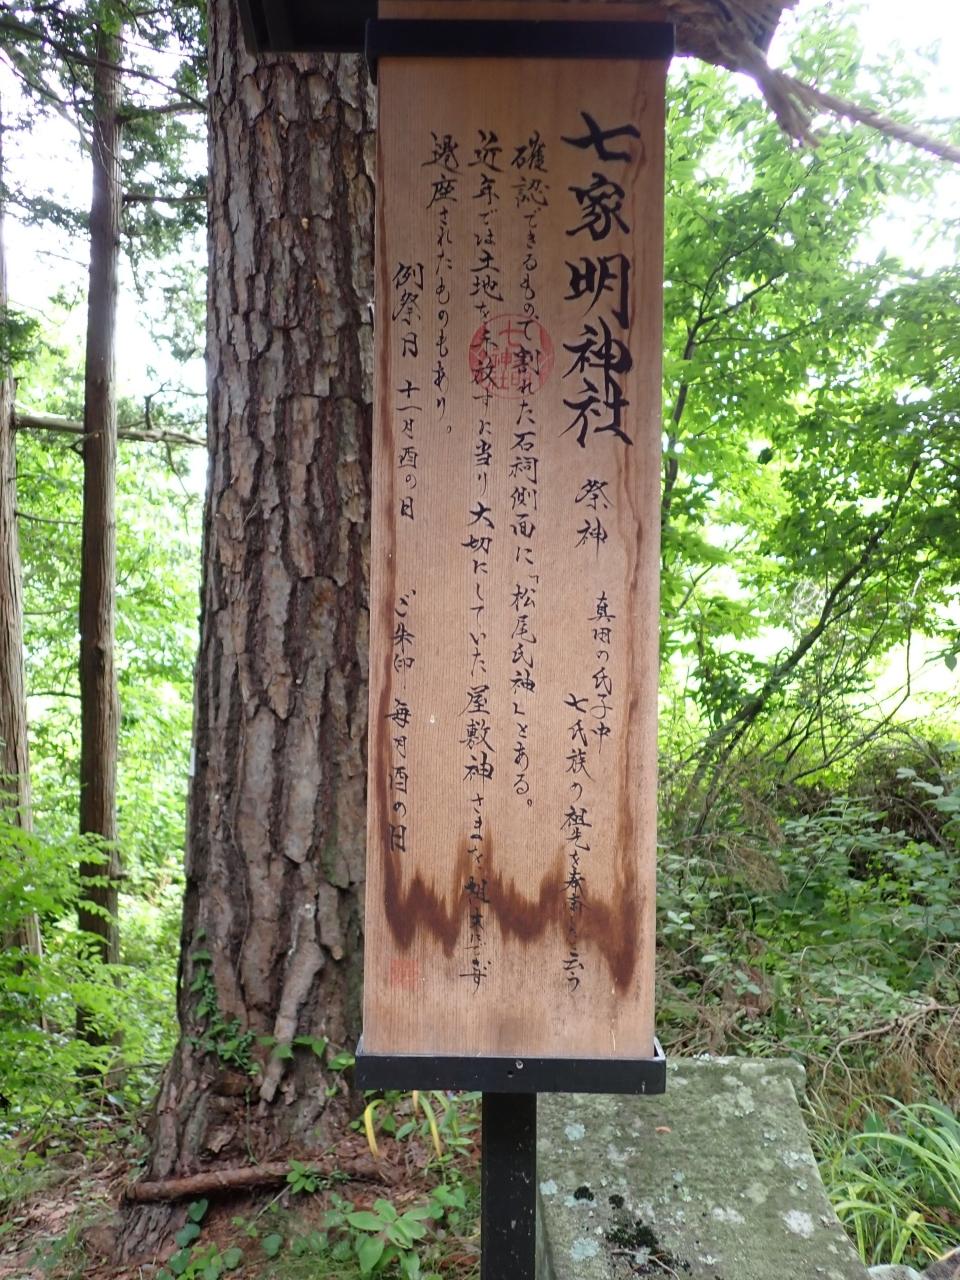 七家明神社
祭神
真田の氏子中
七氏族の祖先を奉斎と云う
確認できるもので割れた石祠側面に「松尾氏神」とある。
近年では土地を手放すに当り大切にしていた屋敷神さまを粗末にせず
遷座されたものもあり。
例祭日 十一月酉の日
ご朱印 毎月酉の日